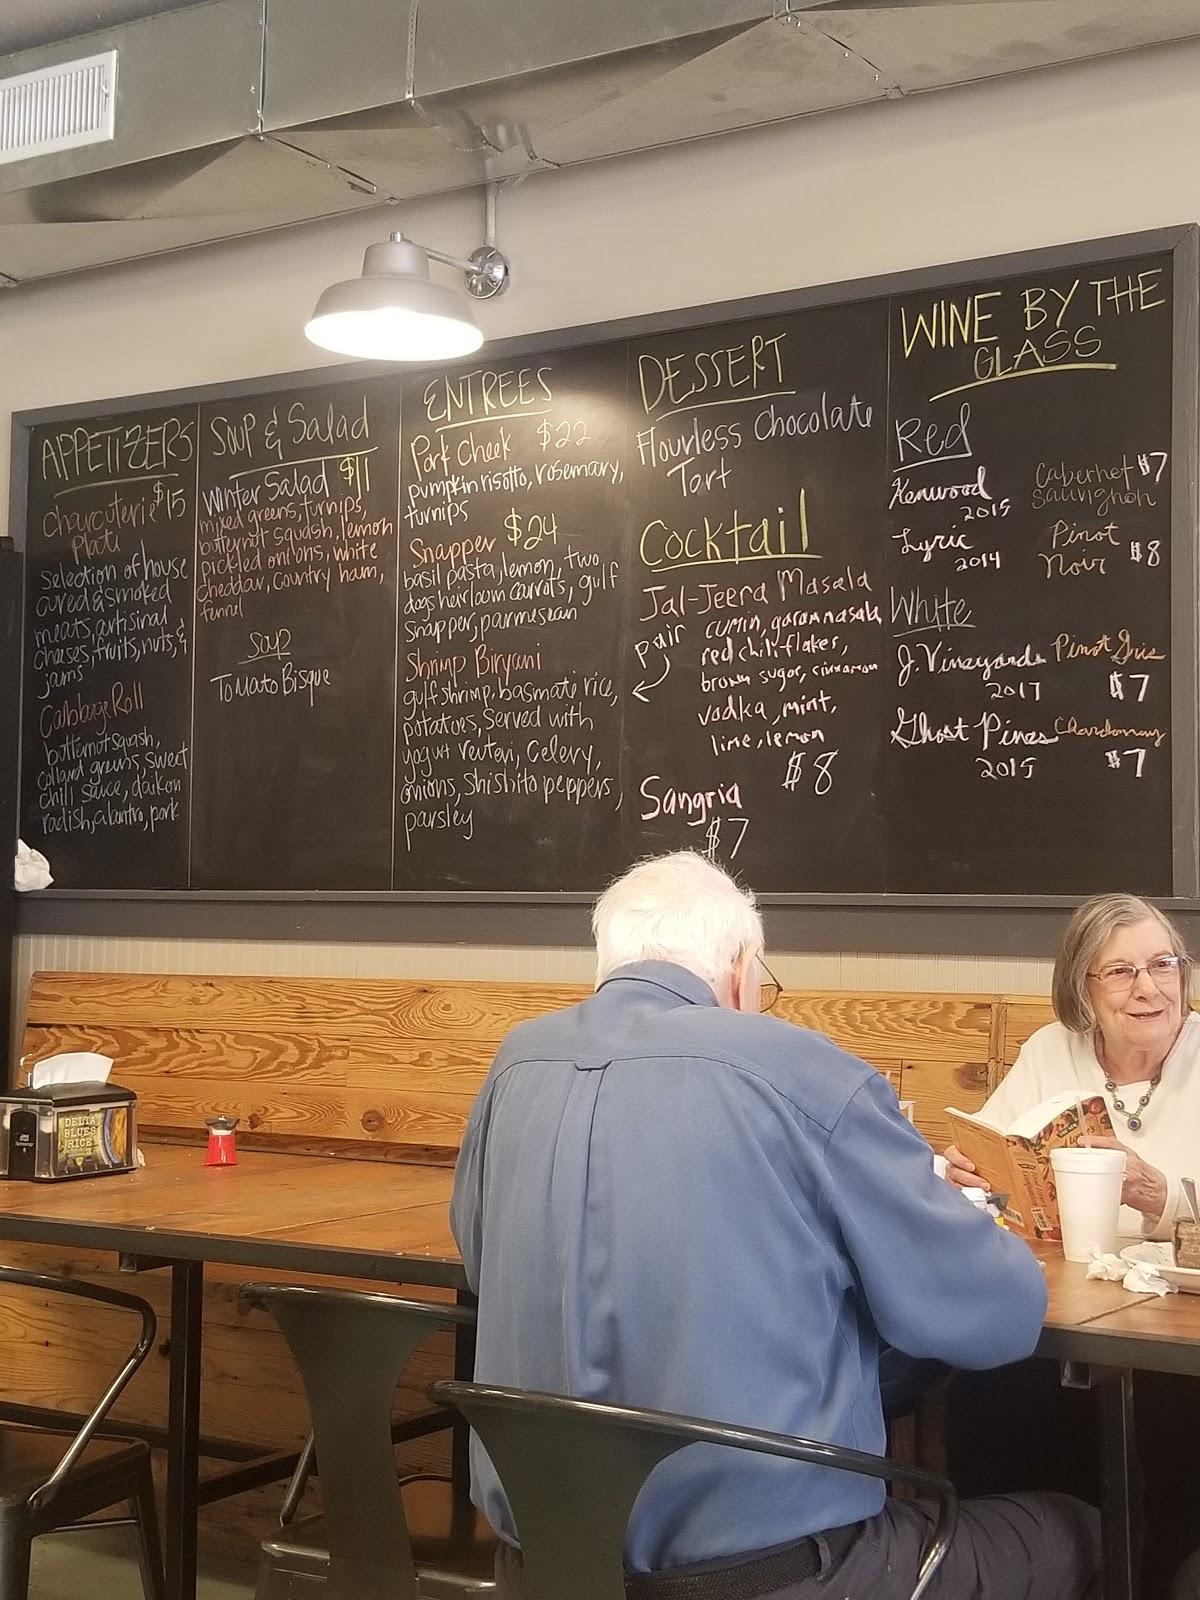 APPETIZERS
Charcuterie $15
Plate
Selection of house
cured & smoked
meats, artisinal
cheeses, fruits, nuts, &
jams
Cabbage Roll
butternut squash,
collard greens, sweet
chili sauce, daikon
radish, cilantro, pork
Soup & Salad
Winter Salad $11
mixed greens, turnips,
butternut squash, lemon
pickled onions, white
cheddar, country ham,
fennel
Soup
Tomato Bisque
ENTREES
Pork Cheek $22
pumpkin risotto, rosemary,
turnips
Snapper $24
basil pasta, lemon, two
dogs heirloom carrots, gulf
snapper, parmesean
Shrimp Biryani
gulf shrimp, basmate rice,
potatoes, served with
yogurt, celery,
onions, shishito peppers,
parsley
DESSERT
Flourless Chocolate
Tart
Cocktail
Jal-Jeera Masala
pair
cumin, garam masala,
red chili flakes,
brown sugar, cinnamon
vodka, mint,
lime, lemon
$8
Sangria
$7
WINE BY THE
GLASS
Red
Kenwood Cabernet $7
2015 Sauvignon
Lyric Pinot
2014 Noir $8
White
J. Vineyards Pinot Gris
2017 $7
Ghost Pines Chardonnay
2015 $7
DELTA
BLUES
RICE